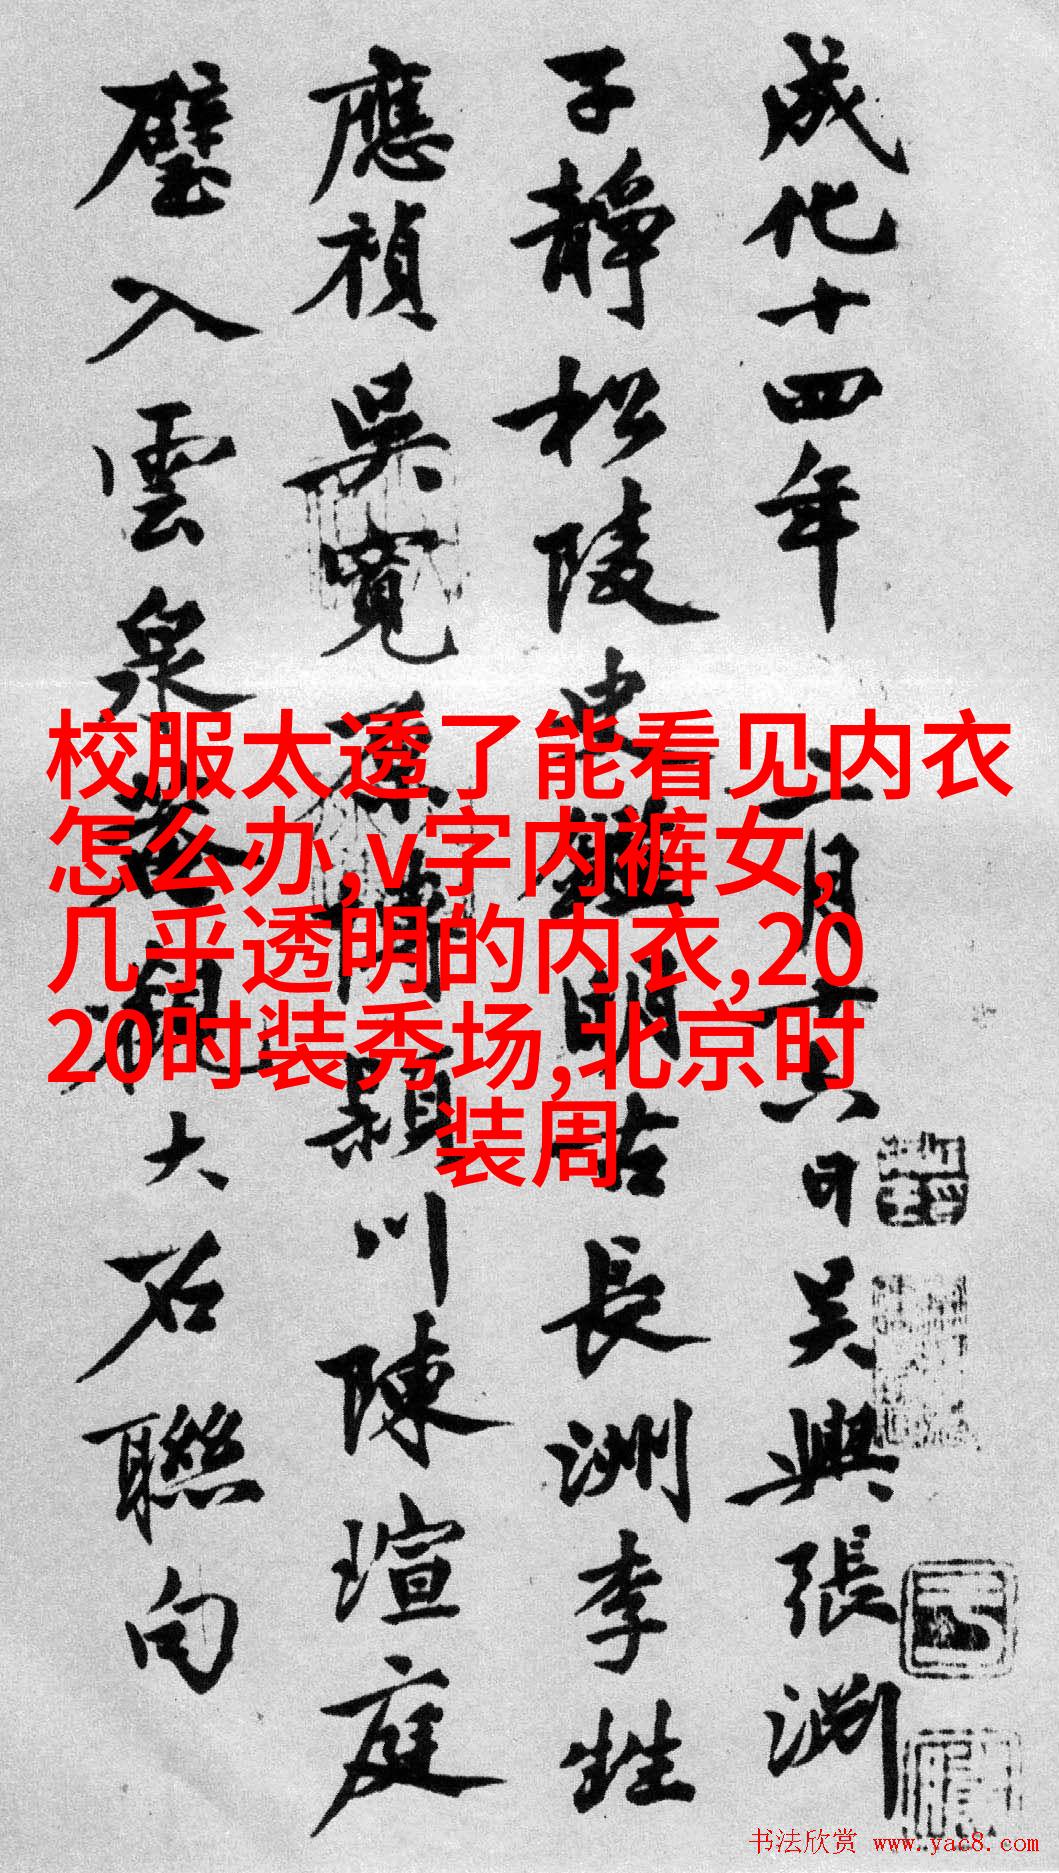 成化十四年二月十六日吳興張淵
子靜松陵史鑑明古長洲李甡
應禎吳寬原博潁川陳瑄庭
璧入雲泉菴觀大石聯句
校服太透了能看见内衣
怎么办,v字内裤女,
几乎透明的内衣,20
20时装秀场,北京时
装周
书法欣赏 www.yac8.com